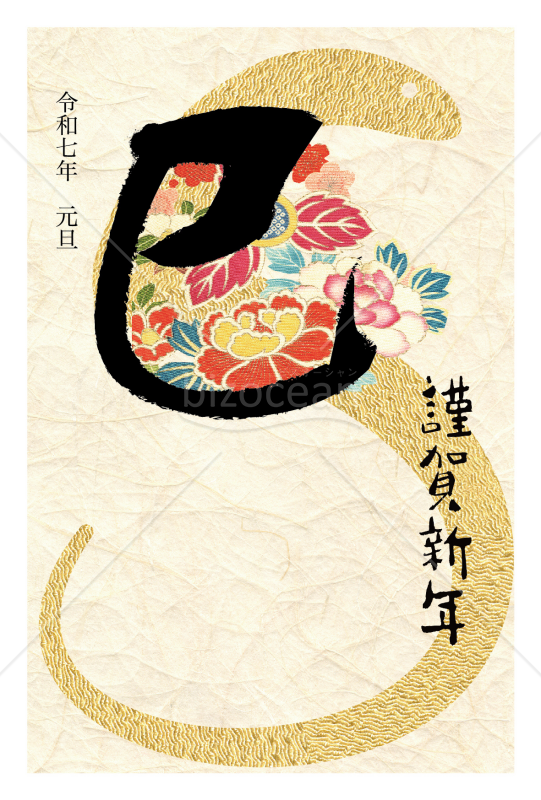 謹賀新年
巳
令和七年　元旦
bizocean